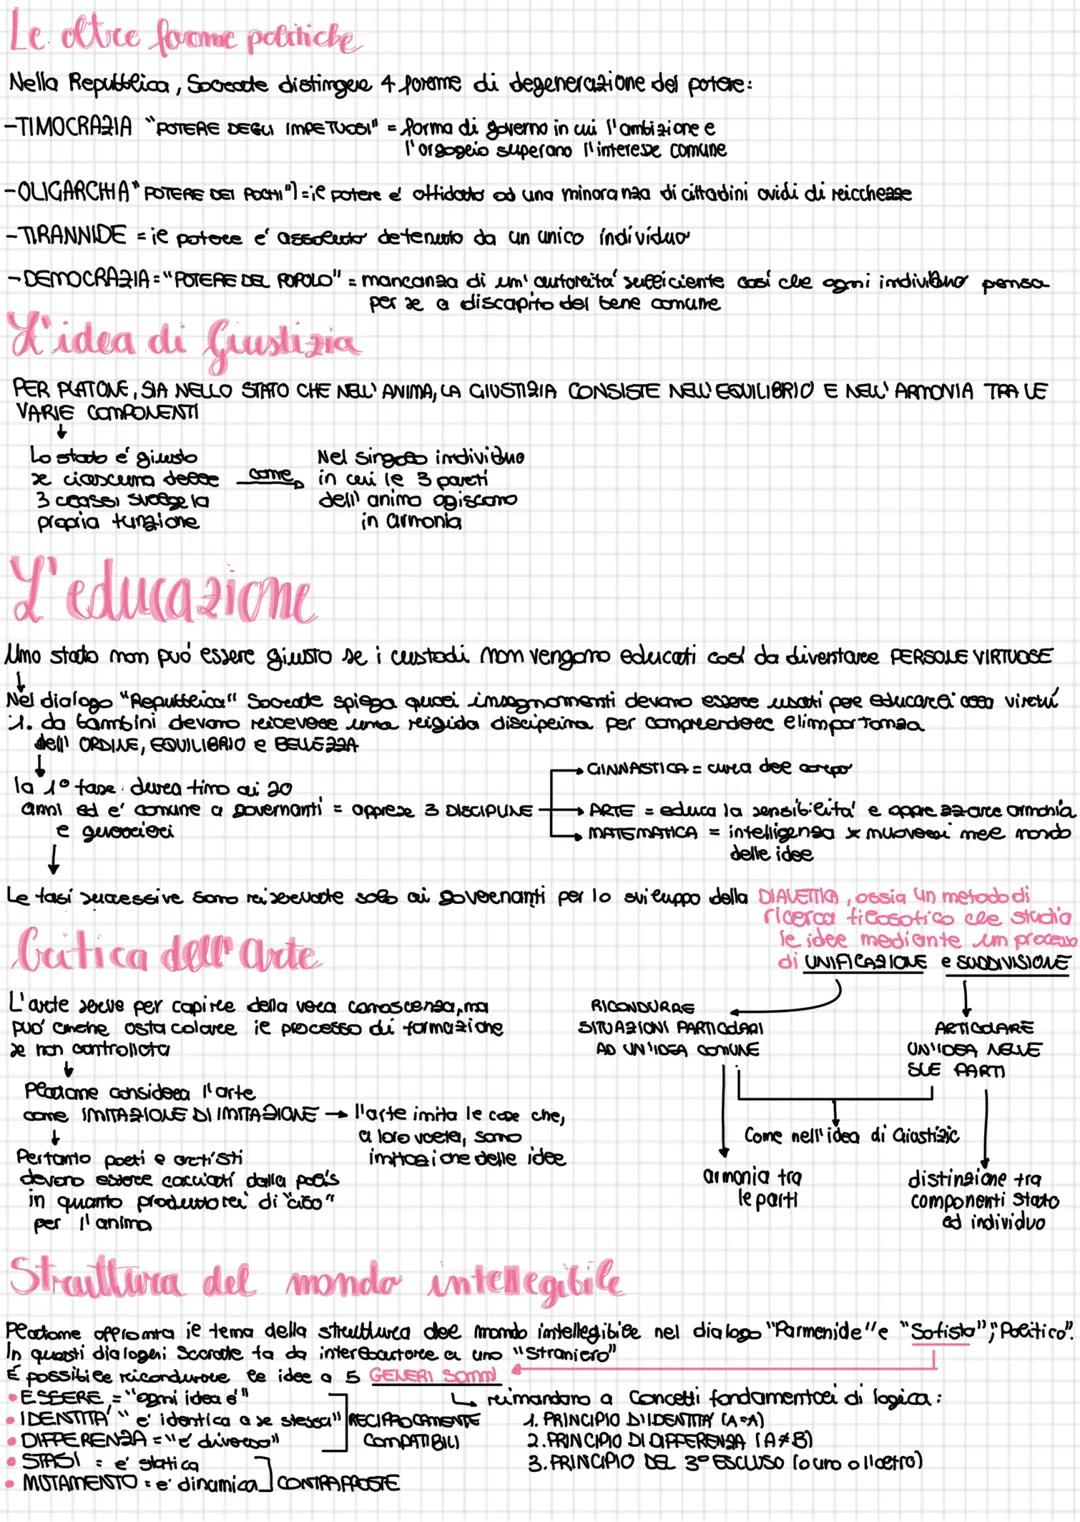 Le altre forme politiche
Nella Repubblica, Socrate distingue 4 forme di degenerazione del potere:
-TIMOCRAZIA "POTERE DEGLI IMPETUOSI" = forma di governo in cui l'ambizione e
l'orgoglio superano l'interesse comune
-OLIGARCHIA "POTERE DEI POCHI") = il potere é affidato ad una minoranza di cittadini avidi di ricchezze
-TIRANNIDE = il potere é assoluto detenuto da un unico individuo
-DEMOCRAZIA = "POTERE DEL POPOLO" = mancanza di un' autorità sufficiente così che ogni individuo pensa
per se a discapito del bene comune
L'idea di Giustizia
PER PLATONE, SIA NELLO STATO CHE NELL' ANIMA, LA GIUSTIZIA CONSISTE NELL' EQUILIBRIO E NELL' ARMONIA TRA LE
VARIE COMPONENTI
Lo stato é giusto
se ciascuna delle
3 classi svolge la
propria funzione
come
Nel singolo individuo
in cui le 3 parti
dell' anima agiscono
in armonia
L'educazione
Uno stato non può essere giusto se i custodi non vengono educati così da diventare PERSOLE VIRTUOSE
Nel dialogo "Repubblica" Socrate spiega quali insegnamenti devono essere usati per educarci alla virtù
1. da bambini devono ricevere una rigida disciplina per comprendere l'importanza
dell' ORDINE, EQUILIBRIO e BELLEZZA
la 1° fase durea fino ai 20
anni ed e' comune a governanti = apprese 3 DISCIPLINE
e guerrieri
GINNASTICA = cura del corpo
ARTE = educa la sensibilità e apprezzare armonia
MATEMATICA = intelligenza x muoversi nel mondo
delle idee
Le fasi successive sono riservate solo ai governanti per lo sviluppo della DIALETTICA, ossia un metodo di
ricerca filosofico che studia
le idee mediante un processo
di UNIFICAZIONE e SUDDIVISIONE
Critica dell' arte
L'arte serve per capire della vera conoscenza, ma
può anche ostacolare il processo di formazione
se non controllata
Platone considera l'arte
come IMITAZIONE DI IMITAZIONE → l'arte imita le cose che,
a loro volta, sono
imitazione delle idee
Pertanto poeti e artisti
devono essere cacciati dalla polis
in quanto produttori di "cibo"
per l'anima
RICONDURRE
SITUAZIONI PARTICOLARI
AD UN'IDEA COMUNE
ARTICOLARE
UN'IDEA NELLE
SUE PARTI
Come nell'idea di Giustizia
armonia tra
le parti
distinzione tra
componenti stato
ed individuo
Struttura del mondo intellegibile
Platone affronta il tema della struttura del mondo intellegibile nel dialogo "Parmenide" e "Sofista"; Politico".
In questi dialoghi Socrate fa da interlocutore a uno "Straniero"
É possibile ricondurre le idee a 5 GENERI SOMMI
• ESSERE = "ogni idea é"
• IDENTITÀ " e' identica a se stessa"
• DIFFERENZA = "é diverso"
RECIPROCAMENTE
COMPATIBILI
• STASI = e' statica
• MUTAMENTO = e' dinamica
CONTRAPPOSTE
rimandano a concetti fondamentali di logica:
1. PRINCIPIO D'IDENTITÀ (A=A)
2. PRINCIPIO DI DIFFERENZA (A≠B)
3. PRINCIPIO DEL 3° ESCLUSO (o uno o l'altro)